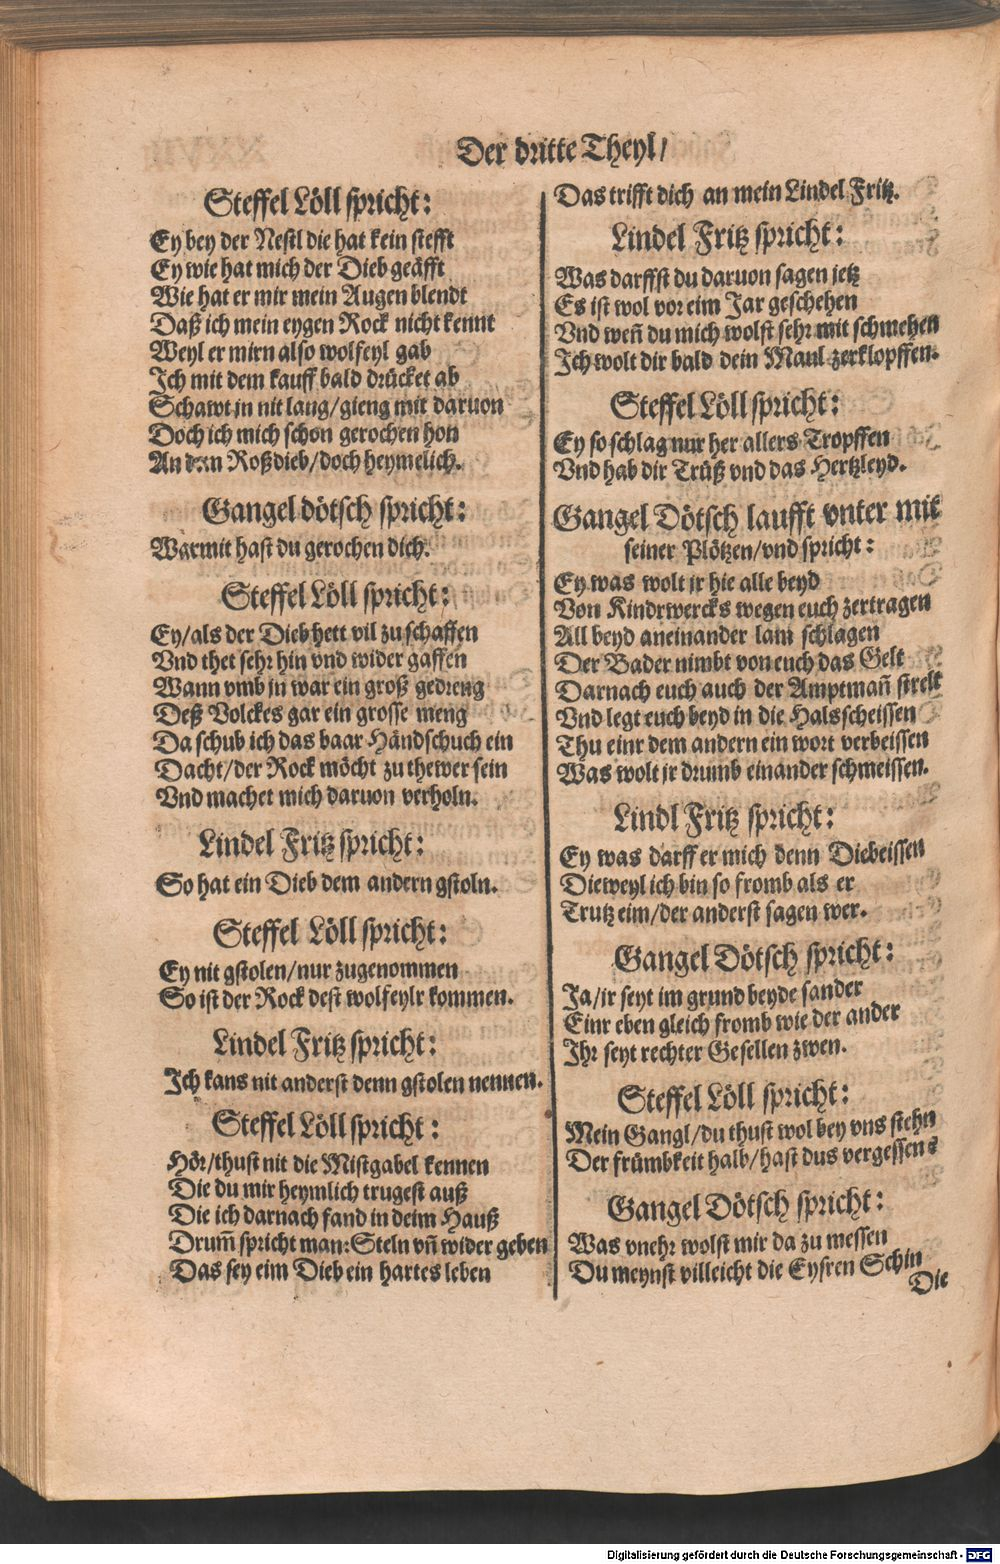 Der dritte Theyl/
Steffel Löll spricht:
Ey bey der Nestl die hat kein stefft
Ey wie hat mich der Dieb geäfft
Wie hat er mir mein Augen blendt
Daß ich mein eygen Rock nicht kennt
Weyl er mirn also wolfeyl gab
Ich mit dem kauff bald drücket ab
Schawt in nit lang/gieng mit daruon
Doch ich mich schon gerochen hon
An den Roßdieb/doch heymelich.
Gangel dötsch spricht:
Warmit hast du gerochen dich.
Steffel Löll spricht:
Ey/als der Dieb hett vil zu schaffen
Vnd thet sehr hin vnd wider gaffen
Wann vmb jn war ein groß gedreng
Deß Volckes gar ein grosse meng
Da schub ich das baar Händschuch ein
Dacht/der Rock möcht zu thewer sein
Vnd machet mich daruon verholn.
Lindel Fritz spricht:
So hat ein Dieb dem andern gstoln.
Steffel Löll spricht:
Ey nit gstolen/nur zugenommen
So ist der Rock dest wolfeylr kommen.
Lindel Fritz spricht:
Ich kans nit anderst denn gstolen nennen.
Steffel Löll spricht:
Hör/thust nit die Mistgabel kennen
Die du mir heymlich trugest auß
Die ich darnach fand in deim Hauß
Drum̃ spricht man: Steln vñ wider geben
Das sey eim Dieb ein hartes leben
Das trifft dich an mein Lindel Fritz.
Lindel Fritz spricht:
Was darffst du daruon sagen jetz
Es ist wol vor eim Jar geschehen
Vnd weñ du mich wolst sehr mit schmehen
Ich wolt dir bald dein Maul zerklopffen.
Steffel Löll spricht:
Ey so schlag nur her allers Tropffen
Vnd hab dir Trüß vnd das Hertzleyd.
Gangel Dötsch laufft vnter mit
seiner Plötzen/vnd spricht:
Ey was wolt jr hie alle beyd
Von Kindrwercks wegen euch zertragen
All beyd aneinander lam schlagen
Der Bader nimbt von euch das Gelt
Darnach euch auch der Amptmañ strelt
Vnd legt euch beyd in die Halsscheissen
Thu einr dem andern ein wort verbeissen
Was wolt jr drumb einander schmeissen.
Lindl Fritz spricht:
Ey was darff er mich denn Diebeissen
Dieweyl ich bin so fromb als er
Trutz eim/der anderst sagen wer.
Gangel Dötsch spricht:
Ja/ir seyt im grund beyde sander
Einr eben gleich fromb wie der ander
Ihr seyt rechter Gesellen zwen.
Steffel Löll spricht:
Mein Gangl/du thust wol bey vns stehn
Der frümbkeit halb/hast dus vergessen:
Gangel Dötsch spricht:
Was vnehr wolst mir da zu messen
Du meynst villeicht die Eysren Schin
Die
Digitalisierung gefördert durch die Deutsche Forschungsgemeinschaft - DFG